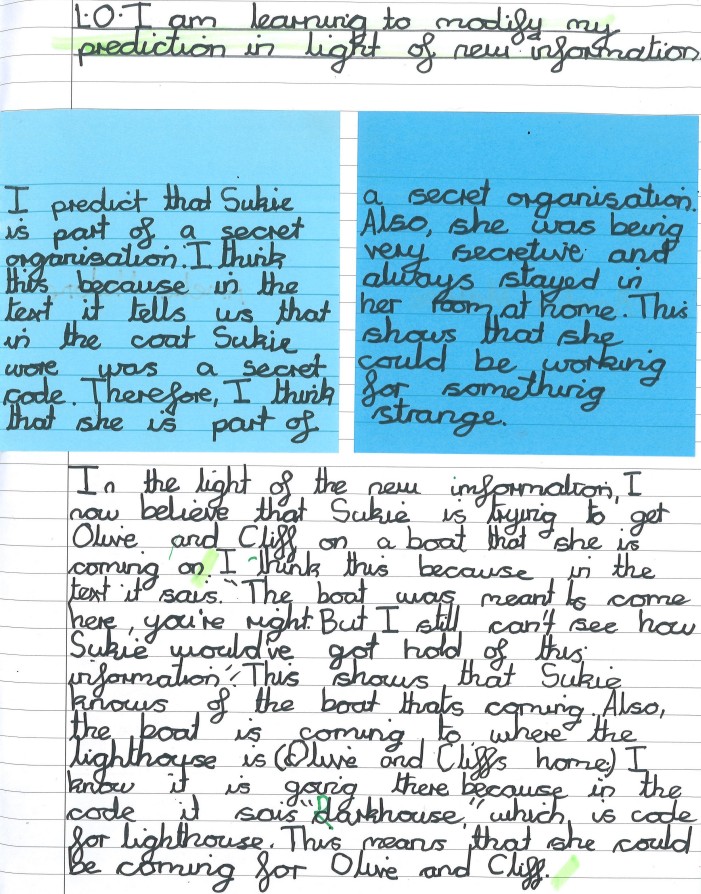 L:O: I am learning to modify my
prediction in light of new information
I predict that Sukie
is part of a secret
organisation. I think
this because in the
text it tells us that
in the coat Sukie
wore was a secret
code. Therefore, I think
that she is part of
a secret organisation.
Also, she was being
very secretive and
always stayed in
her room at home. This
shows that she
could be working
for something
strange.
In the light of the new information, I
now believe that Sukie is trying to get
Olive and Cliff on a boat that she is
coming on. I think this because in the
text it sais. "The boat was meant to come
here, you're right. But I still can't see how
Sukie would've got hold of this
information". This shows that Sukie
knows of the boat thats coming. Also,
the boat is coming to where the
lighthouse is (Olive and Cliffs home) I
know it is going there because in the
code it sais "Darkhouse" which is code
for lighthouse. This means that she could
be coming for Olive and Cliff.